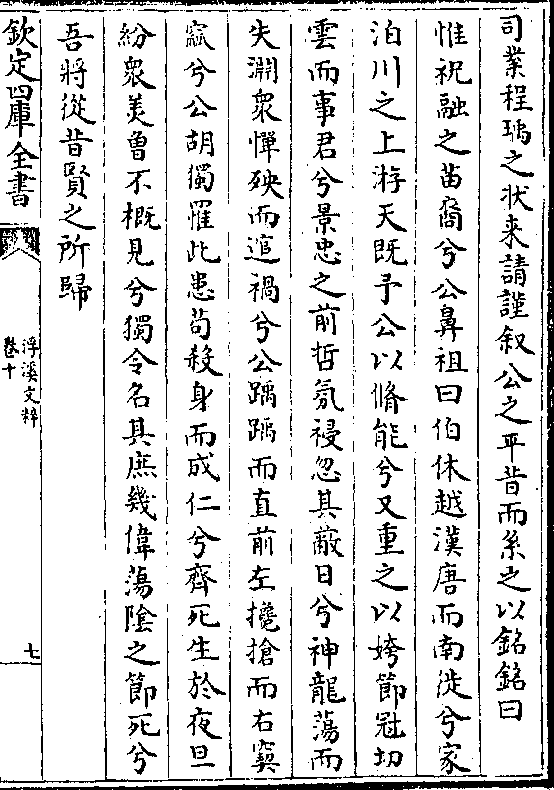 司業程瑀之状来請謹叙公之平昔而系之以銘銘曰
惟祝融之苗裔兮公鼻祖曰伯休越漢唐而南徙兮家
泊川之上游天既予公以脩能兮又重之以姱節冠切
雲而事君兮景忠之前哲氛祲忽其蔽日兮神龍蕩而
失淵衆憚殃而逭禍兮公踽踽而直前左攙搶而右窫
窳兮公胡獨罹此患苟殺身而成仁兮齊死生於夜旦
紛衆羙曽不概見兮獨令名其庶幾偉蕩陰之節死兮
吾將從昔賢之所歸
欽定四庫全書
浮溪文粹
卷十
七